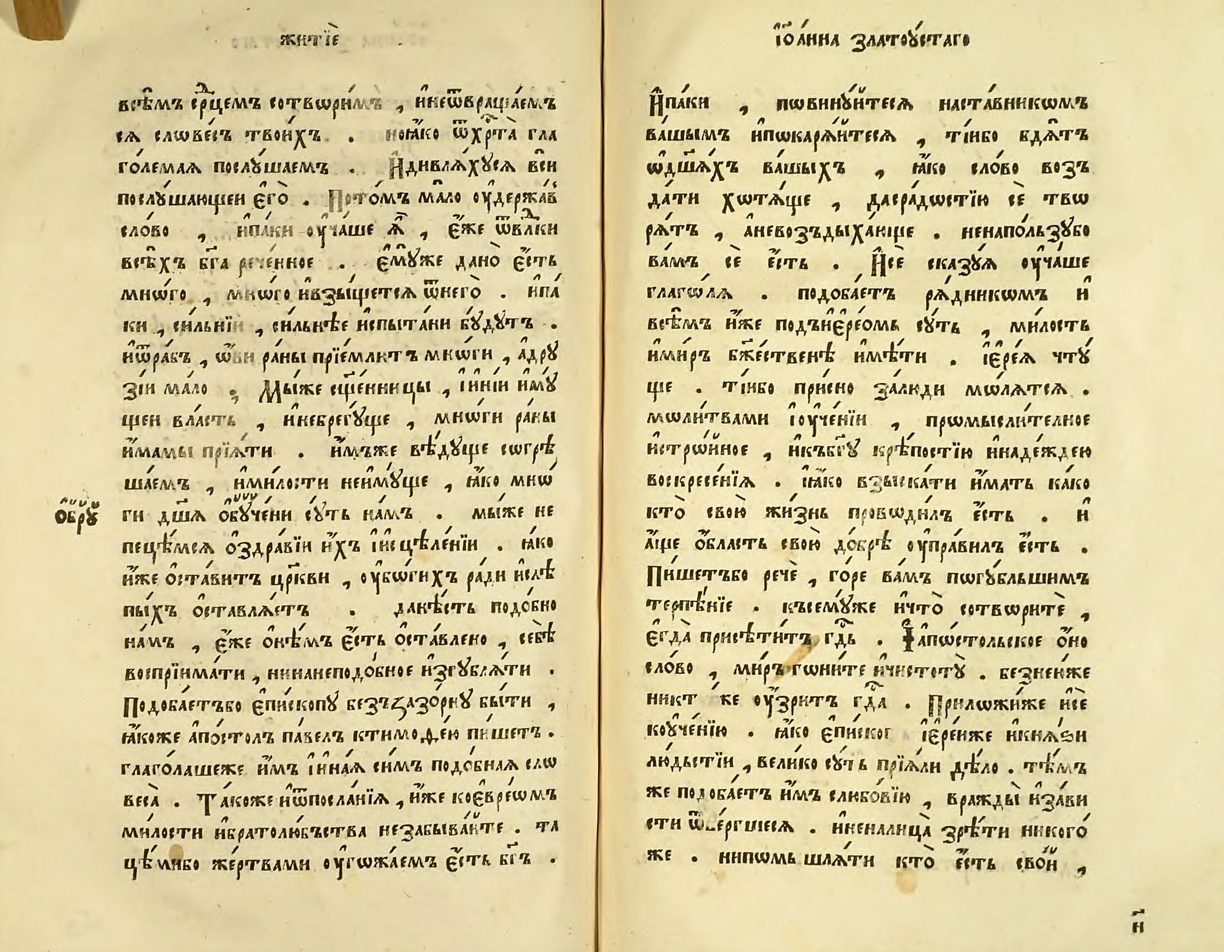 житїѐ
всѣ́мъ ср҃цемъ сотвори́мъ , и҆неѿвраща́емъ
сѧ слѡве́съ твои́хъ . ноꙗ҆́ко ѿхр҃та̀ гла
го́лемаѧ послꙋ́шаемъ . И҆дивлѧ́хꙋсѧ вси
послꙋ́шающеи є҆го̀ . Пото́мъ ма́ло оу҆держа́в
сло́во , и҆па́ки оу҆ча́ше ѧ҆̀ , є҆́же ѿвл҃ки
всѣ́хъ бг҃а рече́нное . є҆мꙋ́же дано̀ є҆́сть
мно́гѡ , мно́гѡ и҆взы́щетсѧ ѿнего̀ . и҆па
ки , си́льнїи , си́льнѣе и҆спы́тани бꙋ́дꙋтъ .
и҆ѡ҆ра́бъ , ѡ҆́ви ра́ны прїе́млютъ мнѡ́ги , а҆дрꙋ
зі́и ма́ло . Мы́же сщ҃е́нницы , і҆и҆ні́и и҆мꙋ́
щеи вла́сть , и҆небрегꙋ́ще , мнѡ́ги ра́ны
и҆́мамы прїѧ́ти . и҆́мъже вѣ́дꙋще согрѣ
ша́емъ , и҆ми́лости неи҆мꙋ́ще , ꙗ҆́ко мнѡ
ги дш҃ѧ ѡ҆бꙋ́чени сꙋ́ть на́мъ . мы́же не
ѻ҆брꙋ
пеце́мсѧ ѻ҆здра́вїи и҆́хъ і҆и҆сцѣле́нїи . ꙗ҆́ко
и҆́же ѡ҆ста́витъ цр҃кви , оу҆бѡ́гихъ ра́ди и҆слѣ
пы́хъ ѡ҆ставлѧ́етъ . да́нѣсть подо́бно
на́мъ , є҆́же ѻ҆нѣ́мъ є҆́сть ѡ҆ста́влено , себѣ̀
воспрїима́ти , нинанеподо́бное и҆згꙋблѧ́ти .
Подоба́етъбо є҆пи́скопꙋ безъꙁазо́рнꙋ бы́ти ,
ꙗ҆́коже а҆по́столъ па́велъ ктимоѳе́ю пи́шетъ .
глаго́лашеже и҆́мъ і҆и҆на́ѧ си́мъ подо́бнаѧ слѡ
веса̀ . Та́коже и҆ѿпосла́нїѧ , и҆́же коє҆вре́ѡмъ
ми́лости и҆братолю́бьства незабыва́йте . та
цѣ́мибо же́ртвами оу҆гѡжа́емъ є҆́сть бг҃ъ .
і҆ѻа́нна златоꙋ́стагѡ
И҆па́ки , пѡвинꙋ́йтесѧ наста́вникѡмъ
ва́шымъ и҆пѡкарѧ́йтесѧ , ті́ибо бдѧ́тъ
ѡ҆дш҃ѧ́хъ ва́шыхъ , ꙗ҆́ко сло́во воз̾
да́ти хотѧ́ще , дасра́достїю сѐ твѡ
рѧ́тъ , а҆невозъдыха́юще . непо́льзꙋбо
ва́мъ сѐ є҆́сть . И҆сѐ ска́зꙋѧ оу҆ча́ше
глаго́лѧ . подоба́етъ рѧ́дникѡмъ и҆
всѣ́мъ и҆́же подъи҆ере́омъ сꙋ́ть , ми́лость
и҆ми́ръ бж҃е́ственѣ и҆мѣ́ти . і҆ере́ѧ чтꙋ́
ще . ті́ибо при́сно залю́ди мо́лѧтсѧ .
мѡли́твами і҆оу҆че́нїи , прѡмысли́телное
и҆стрѡ́йное , и҆къбг҃ꙋ крѣ́постїю и҆наде́ждею
воскресе́нїѧ . ꙗ҆́ко взыска́ти и҆́мать ка́ко
кто̀ свою̀ жи́знь провѡди́лъ є҆́сть . и҆
а҆́ще ѻ҆́бласть свою̀ до́брѣ оу҆пра́вилъ є҆́сть .
Пи́шетъбо речѐ , го́ре ва́мъ пѡгꙋ́бльшимъ
терпѣ́нїе . къ​семꙋ́же и҆что̀ сотворитѐ ,
є҆гда̀ присѣти́тъ гд҃ь . І҆а҆пѡ́стольское ѻ҆но
сло́во , ми́ръ гѡни́те и҆чистотꙋ̀ . безнеѧ́же
никт же оу҆́зритъ гд҃а . Прилѡжи́же и҆сѐ
коу҆че́нїю . ꙗ҆́ко є҆пи́скоп і҆ере́иже и҆кнѧ́ѕи
лю́дьстїи , вели́ко сꙋ́ть прїѧ́ли дѣ́ло . тѣ́мъ
же подоба́етъ и҆́мъ слюбо́вїю , вражды̀ и҆за́ви
сти ѿве́ргшесѧ . и҆неналица̀ зрѣ́ти никого́
же . нипѡмышлѧ́ти кто̀ є҆́сть сво́й ,
н҃